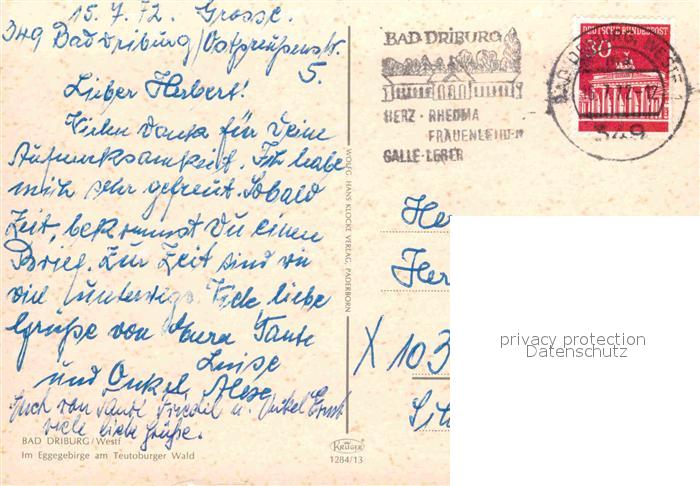 15.7.72. Grosse.
349 Bad Driburg/Ostpreußenstr.
5.
Lieber Herbert!
Vielen Dank für Deine
Aufmerksamkeit. Ich habe
mich sehr gefreut. Sobald
Zeit, bekommst Du einen
Brief. Zur Zeit sind wir
viel unterwegs. Viele liebe
Grüße von Eurer Tante
Luise
und Onkel
Euch von Tante u. Onkel Ernst
viele liebe Grüße.
BAD DRIBURG/Westf
Im Eggegebirge am Teutoburger Wald
WOLFG. HANS KLOCKE VERLAG, PADERBORN
KRÜGER
1284/13
BAD DRIBURG
HERZ - RHEUMA
FRAUENLEIDEN
GALLE-LEBER
DEUTSCHE BUNDESPOST
30
BAD DRIBURG, WESTF 1
16.7.72-12
349
He
Her
X 103
privacy protection
Datenschutz